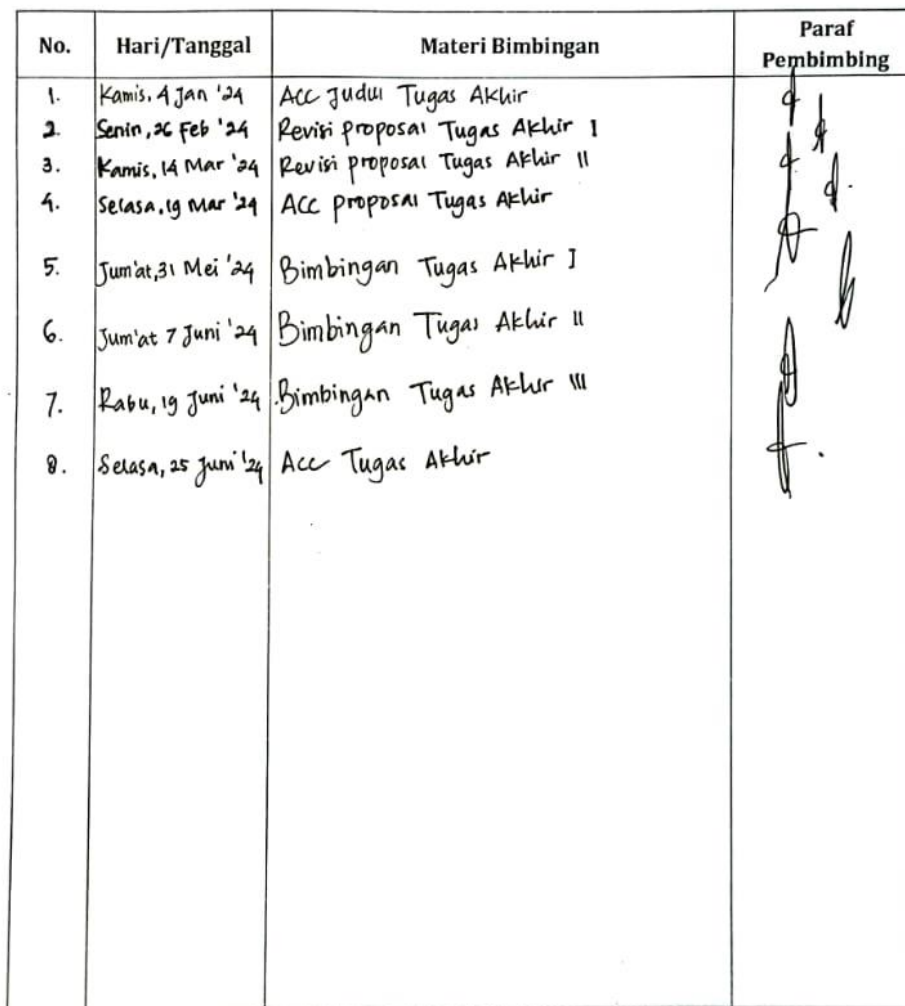 No. Hari/Tanggal Materi Bimbingan Paraf Pembimbing
1. Kamis, 4 Jan '24 Acc Judul Tugas Akhir
2. Senin, 26 Feb '24 Revisi proposal Tugas Akhir I
3. Kamis, 14 Mar '24 Revisi proposal Tugas Akhir II
4. Selasa, 19 Mar '24 ACC proposal Tugas Akhir
5. Jum'at, 31 Mei '24 Bimbingan Tugas Akhir I
6. Jum'at 7 Juni '24 Bimbingan Tugas Akhir II
7. Rabu, 19 Juni '24 Bimbingan Tugas Akhir III
8. Selasa, 25 Juni '24 Acc Tugas Akhir